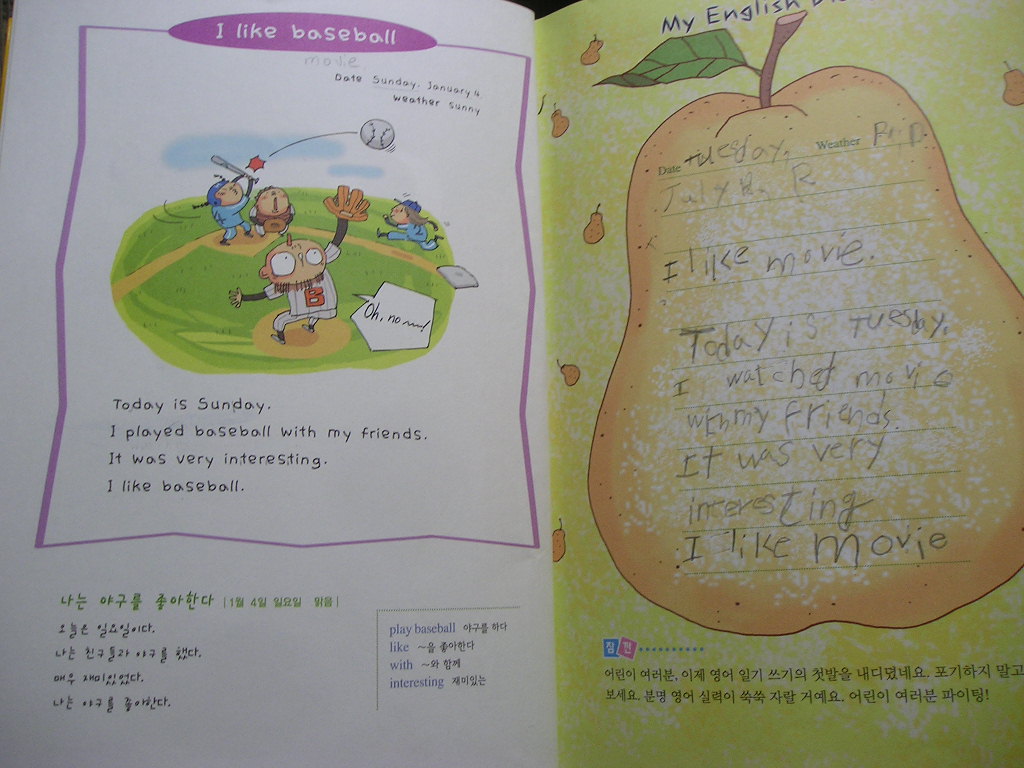 I like baseball
movie
Date Sunday. January 4.
Weather Sunny
Oh, no
Today is Sunday.
I played baseball with my friends.
It was very interesting.
I like baseball.
나는 야구를 좋아한다 | 1월 4일 일요일 맑음 |
오늘은 일요일이다.
나는 친구들과 야구를 했다.
매우 재미있었다.
나는 야구를 좋아한다.
play baseball 야구를 하다
like ~을 좋아한다
with ~와 함께
interesting 재미있는
My English
Date Tuesday, Weather
July
I like movie.
Today is Tuesday.
I watched movie
with my friends.
It was very
interesting
I like movie
잠깐
어린이 여러분, 이제 영어 일기 쓰기의 첫발을 내디뎠네요. 포기하지 말고
보세요. 분명 영어 실력이 쑥쑥 자랄 거예요. 어린이 여러분 파이팅!